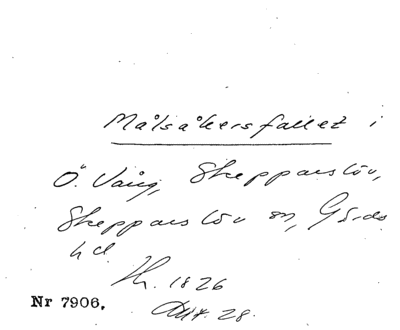 Målsåkersfallet i
Ö. Vång, Skepparslöv,
Skepparslöv sn, Gärds
hd.
1826
28.
Nr 7906.